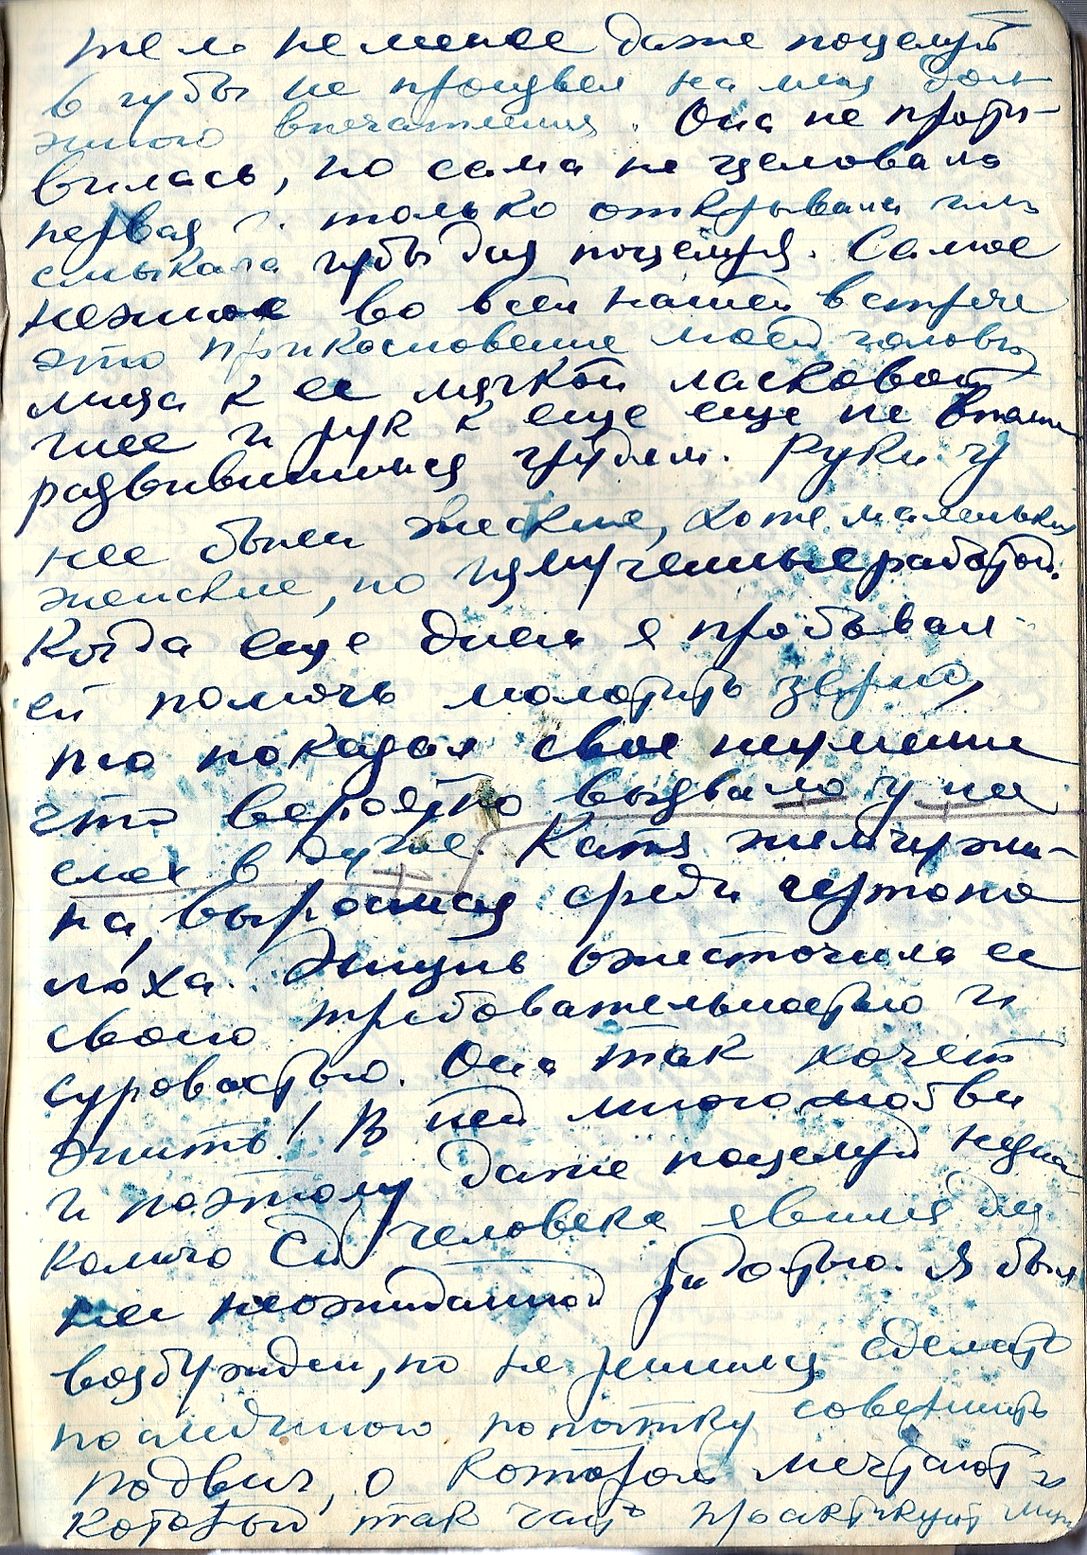 тем не менее даже поцелуй
в губы не произвел на меня долж-
ного впечатления. Она не проти-
вилась, но сама не целовала
первая и только открывала или
смыкала губы для поцелуя. Самое
нежное во всей нашей встрече
это прикосновение моей головы
лица к ее мягкой ласковой
шее и рук к еще еще не вполне
развившимся грудям. Руки у
нее были жесткие, хотя маленькие
женские, но измученные работой.
Когда еще днем я пробывал
ей помочь молотить зерно,
то показал свое неумение
что вероятно вызвало у нее
смех в душе. Катя жемчужи-
на, выросшая среди чертопо
лоха. Жизнь ожесточила ее
своею требовательностью и
суровостью. Она так хочет
жить! В ней много любви
и поэтому даже поцелуй незна
комого ей человека явился для
нее неожиданной радостью. Я был
возбужден, но не решился сделать
последнюю попытку совершить
подвиг, о котором мечтают и
который так часто практикуют